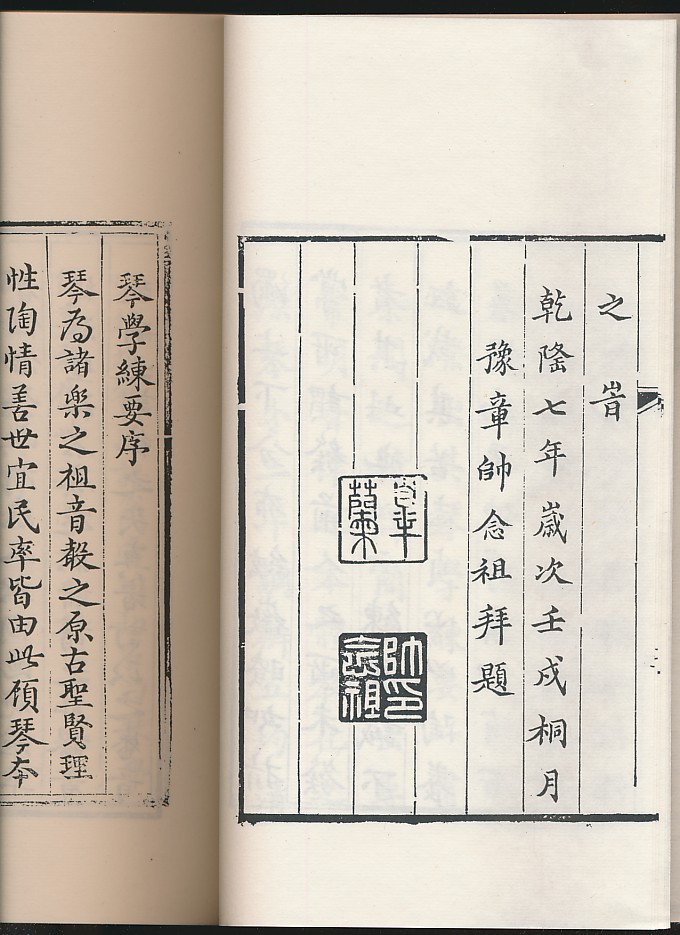 之旹
乾隆七年嵗次壬戌桐月
豫章帥念祖拜題
帥印
念祖
琴學練要序
琴為諸楽之祖音殸之原古聖賢理
性陶情善世宜民率皆由此頋琴夲